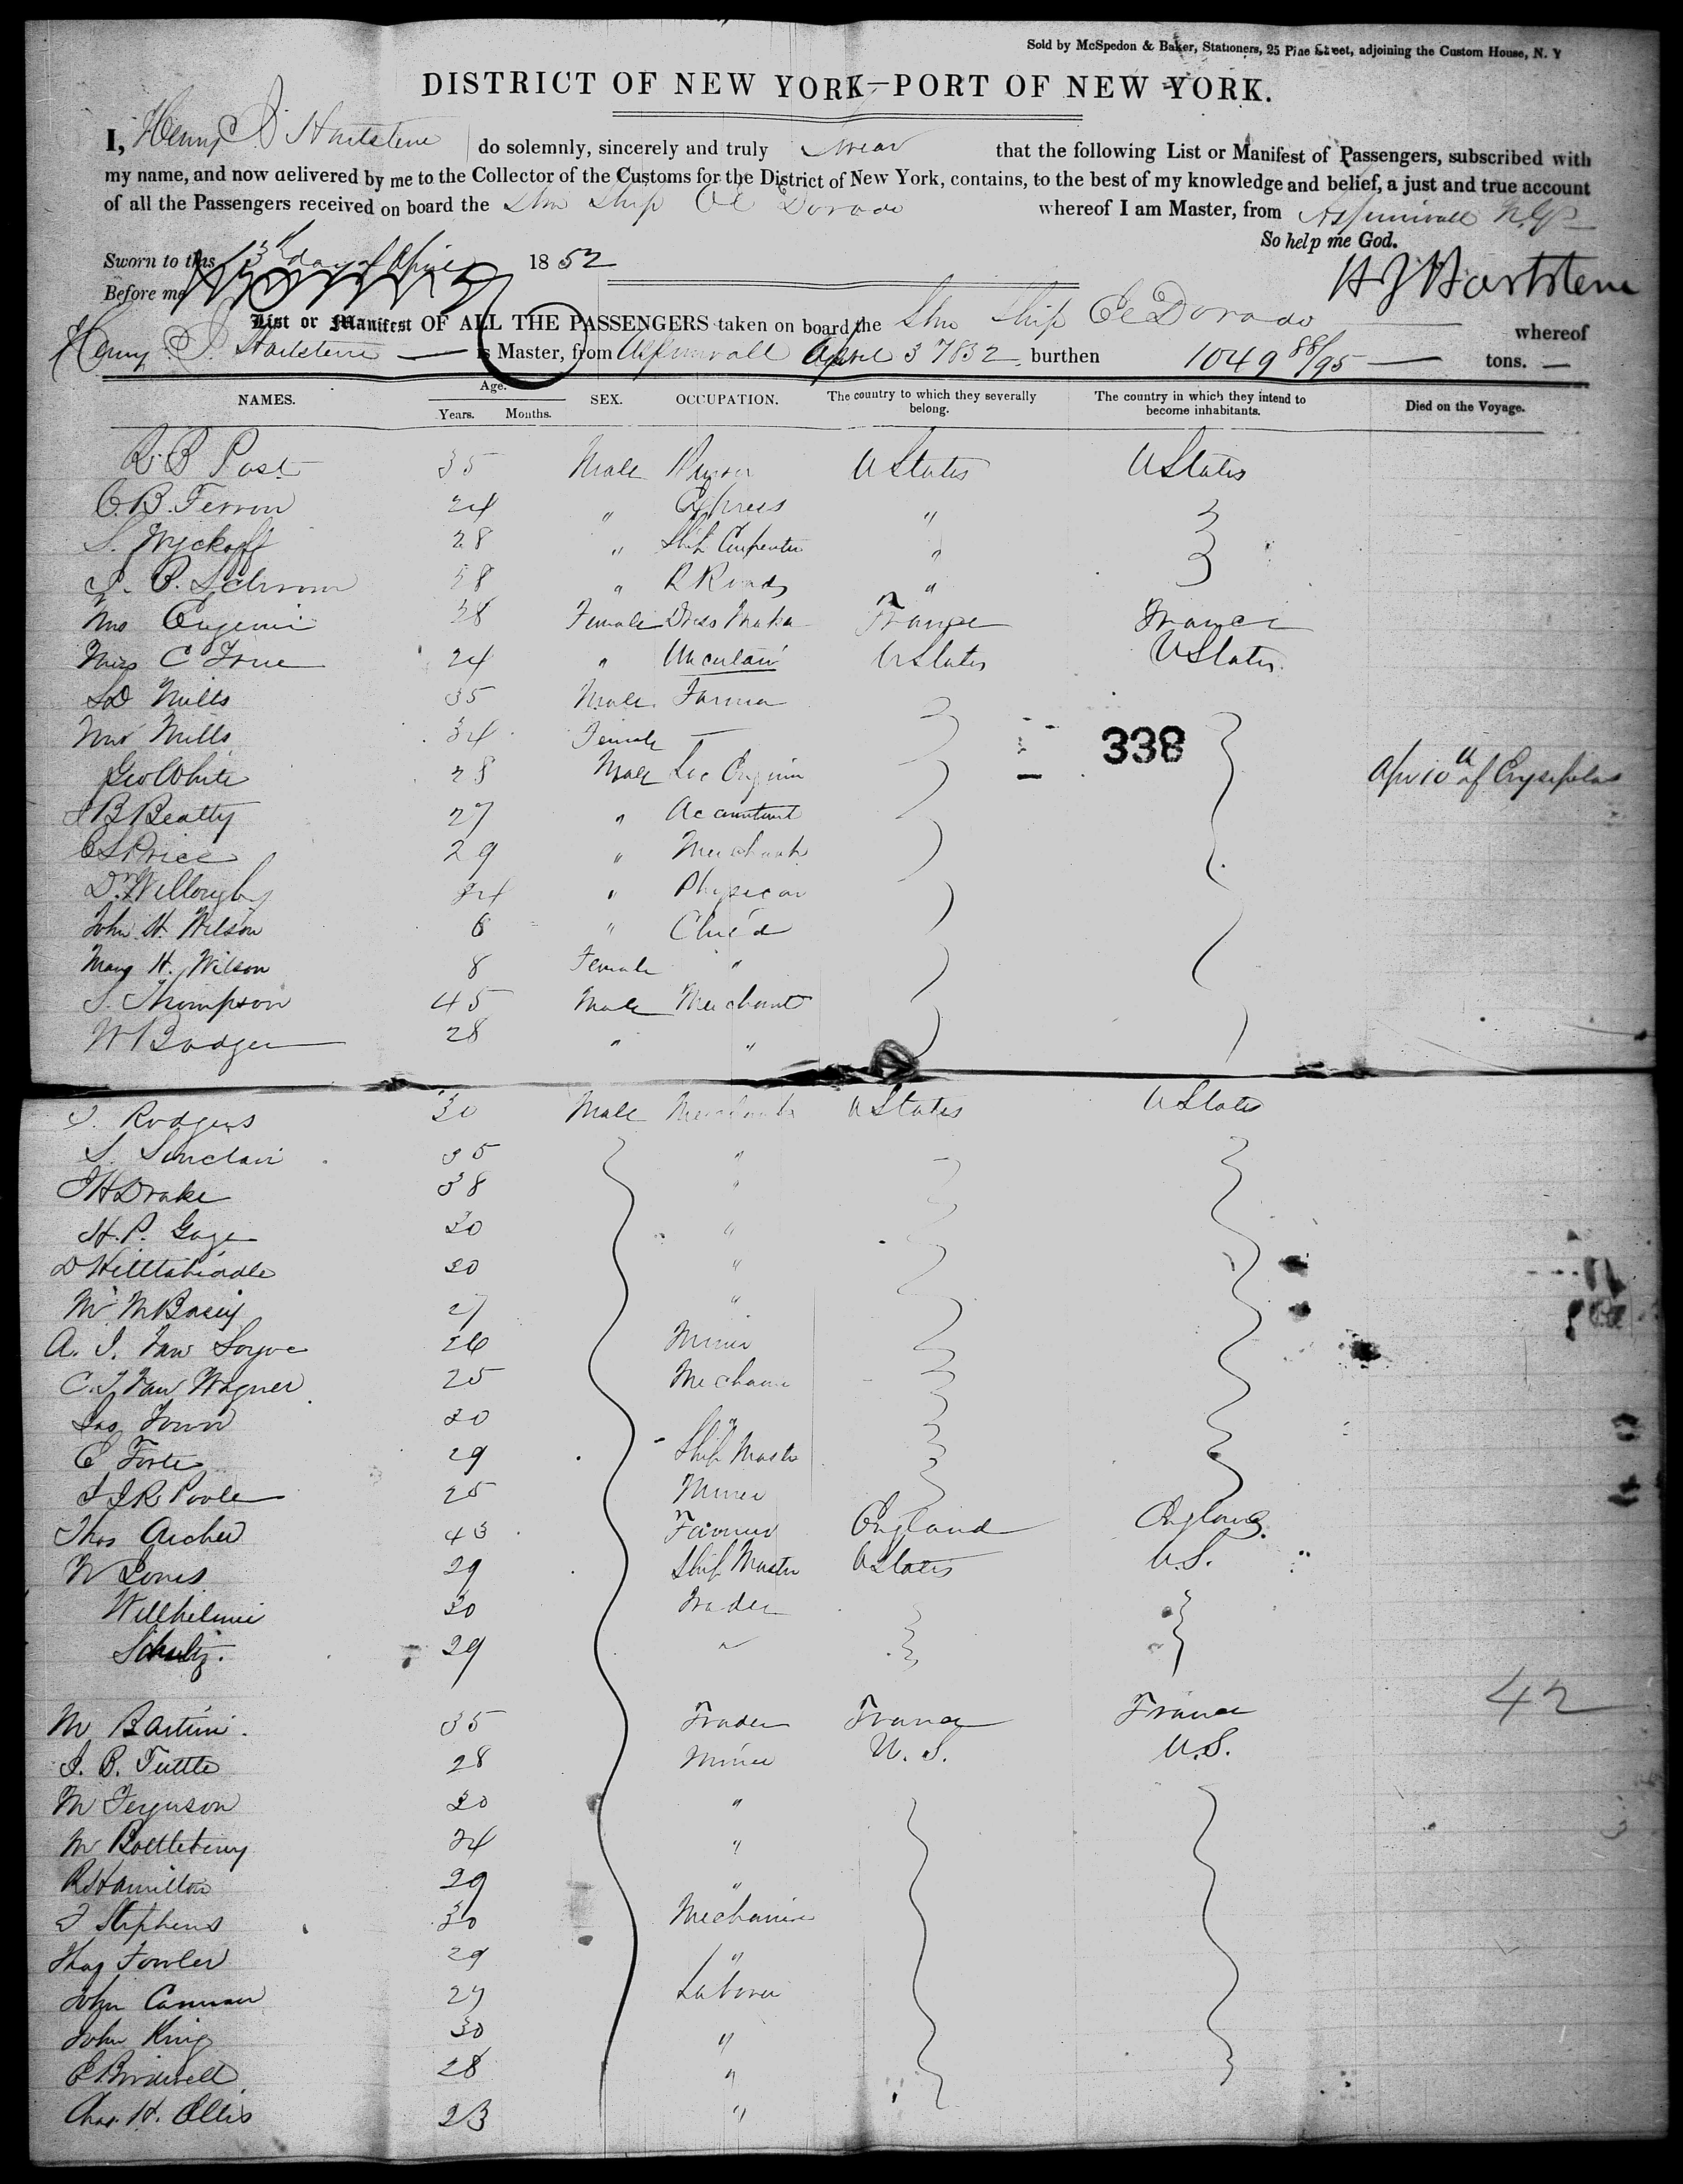 Sold by McSpedon & Baker, Stationers, 25 Pine Street, adjoining the Custom House, N. Y
DISTRICT OF NEW YORK—PORT OF NEW YORK.
I, Henry J Hartstene do solemnly, sincerely and truly Swear that the following List or Manifest of Passengers, subscribed with
my name, and now delivered by me to the Collector of the Customs for the District of New York, contains, to the best of my knowledge and belief, a just and true account
of all the Passengers received on board the Stm Ship El Dorado whereof I am Master, from Aspinwall N.G.
So help me God.
Sworn to this 13th day of April 1852
Before me
H J Hartstene
List or Manifest OF ALL THE PASSENGERS taken on board the Stm Ship El Dorado whereof
Henry J. Hartstene is Master, from Aspinwall April 3 1852 burthen 1049 88/95 tons.
NAMES. Age. Years. Months. SEX. OCCUPATION. The country to which they severally belong. The country in which they intend to become inhabitants. Died on the Voyage.
R. B Post 35 Male U States U States
C. B. Ferron 24 " Express "
S. Wyckoff 28 " Ship Carpenter "
" R Roads "
Mrs Eugenie 28 Female Dress Maker France France
Miss C True 24 " U States U States
S D Mills 35 Male Farmer
Mrs Mills 34 Female —
Geo White 28 Male 338 Apr 10th of Erysipelas
J B Beatty 27 " Accountant
C S Price 29 " Merchant
Dr Willoughby 34 " Physician
John H. Wilson 6 " Child
Mary H. Wilson 8 Female "
S. Thompson 45 Male Merchant
W Badger 28 " "
J. Rodgers 30 Male Merchant U States U States
S. Sinclair 35 "
J H Drake 38 "
H. P. Gage 30 "
D 30 "
Mr 27 "
A. J. Van 26 Miner
C. J. Van Wagner 25 Mechanic
Jas Town 30 "
E Forte 29 Ship Master
J J R Poole 25 Miner
Thos Archer 43 Farmer England England.
W Jones 29 Ship Master U States U.S.
Willhelmi 30 Trader
Schultz. 29 "
M Bartini. 35 Trader France France
42
J. B. Tuttle 28 Miner U. S. U.S.
M Ferguson 30 "
M Battleberry 24 "
R Hamilton 29 "
J Stephens 30 Mechanic
Thos Fowler 29 "
John 27 Laborer
John King 30 "
E Birdwell 28 "
Chas. H. Ellis 23 "